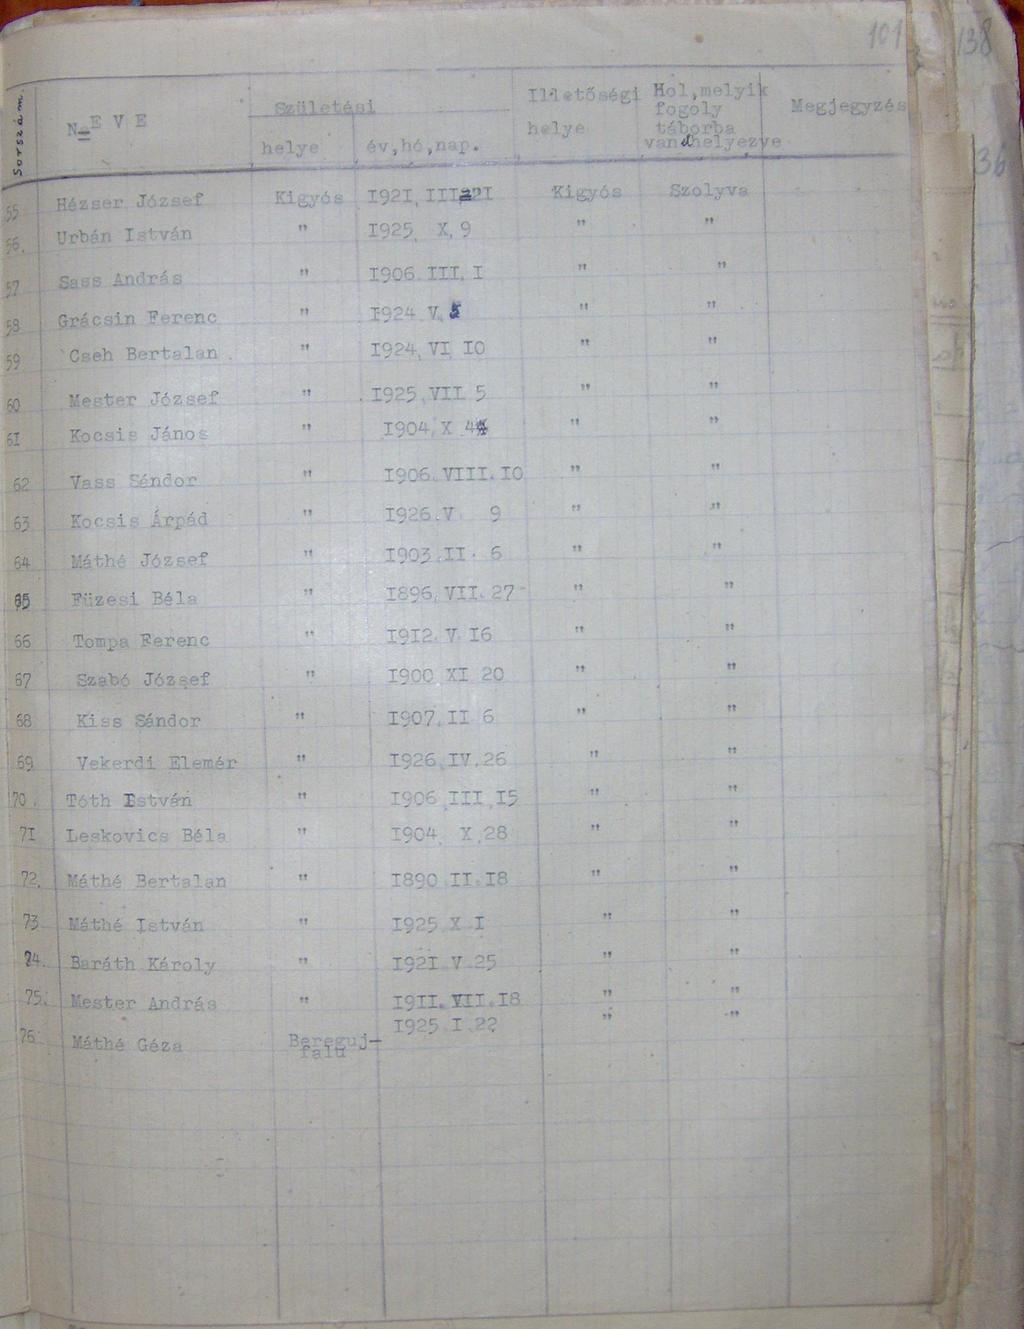 101 138
Sorszám. N=E V E Születési Illetőségi helye Hol, melyik fogoly táborba van elhelyezve Megjegyzés
helye év,hó,nap.
36
55 Hézser József Kigyós I92I, III 2I Kigyós Szolyva
56. Urbán István " I925, X, 9 " "
57 Sass András " I906. III, I " "
58 Grácsin Ferenc " I924 V. 5 " "
59 Cseh Bertalan " I924, VI IO " "
60 Mester József " I925, VII 5 " "
6I Kocsis János " I904, X 4 " "
62 Vass Sándor " I906. VIII. IO " "
63 Kocsis Árpád " I926. V 9 " "
64 Máthé József " I903. II. 6 " "
65 Füzesi Béla " I896, VII. 27 " "
66 Tompa Ferenc " I9I2. V. I6 " "
67 Szabó József " I900 XI 20 " "
68 Kiss Sándor " I907. II 6 " "
69 Vekerdi Elemér " I926. IV. 26 " "
70. Tóth István " I906 III, I5 " "
7I Leskovics Béla " I904, X ,28 " "
72. Máthé Bertalan " I890 II. I8 " "
73 Máthé István " I925 X I " "
74. Baráth Károly " I92I V 25 " "
75. Mester András " I9II. VII. I8 " "
76 Máthé Géza Bereguj-falu I925 I 22 " "